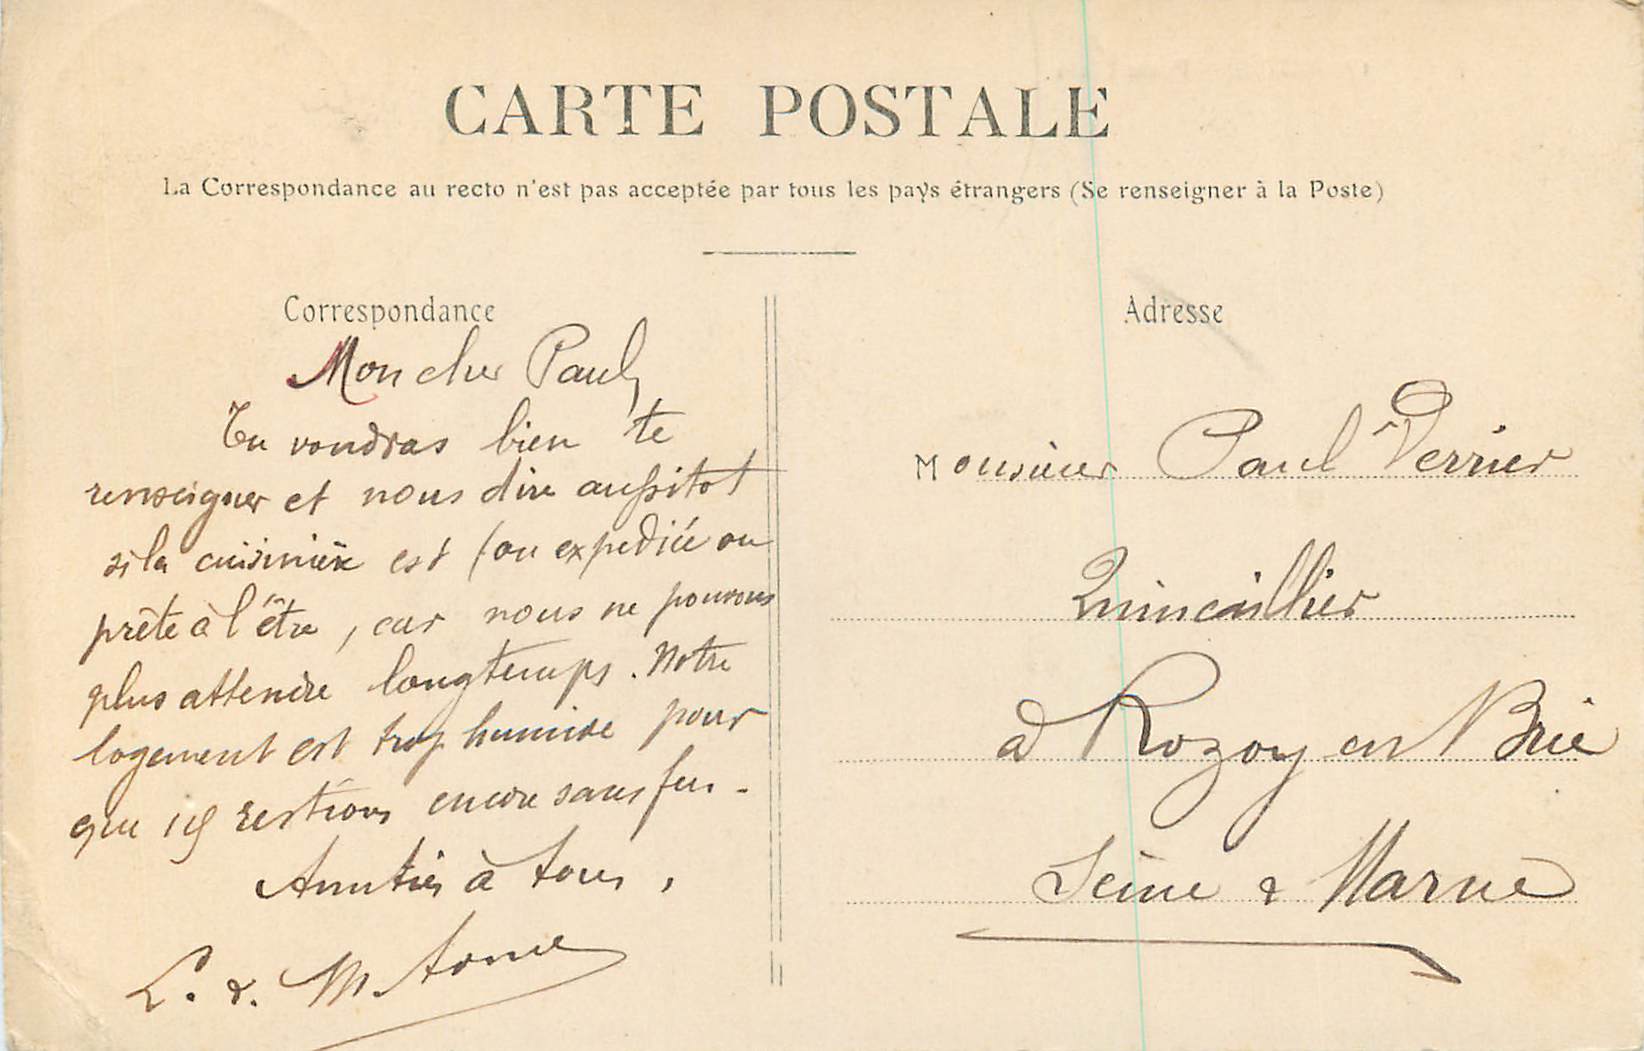 CARTE POSTALE
La Correspondance au recto n'est pas acceptée par tous les pays étrangers (Se renseigner à la Poste)
Correspondance
Mon cher Paul,
Tu voudras bien te
renseigner et nous dire aussitot
si la cuisinière est (ou expediée ou
prête à l'être, car nous ne pouvons
plus attendre longtemps. Notre
logement est trop humide pour
que restions encore sans feu.
Amitiés à tous,
L. & M.
Adresse
Monsieur Paul Verrier
Quincaillier
à Rozoy en Brie
Seine & Marne